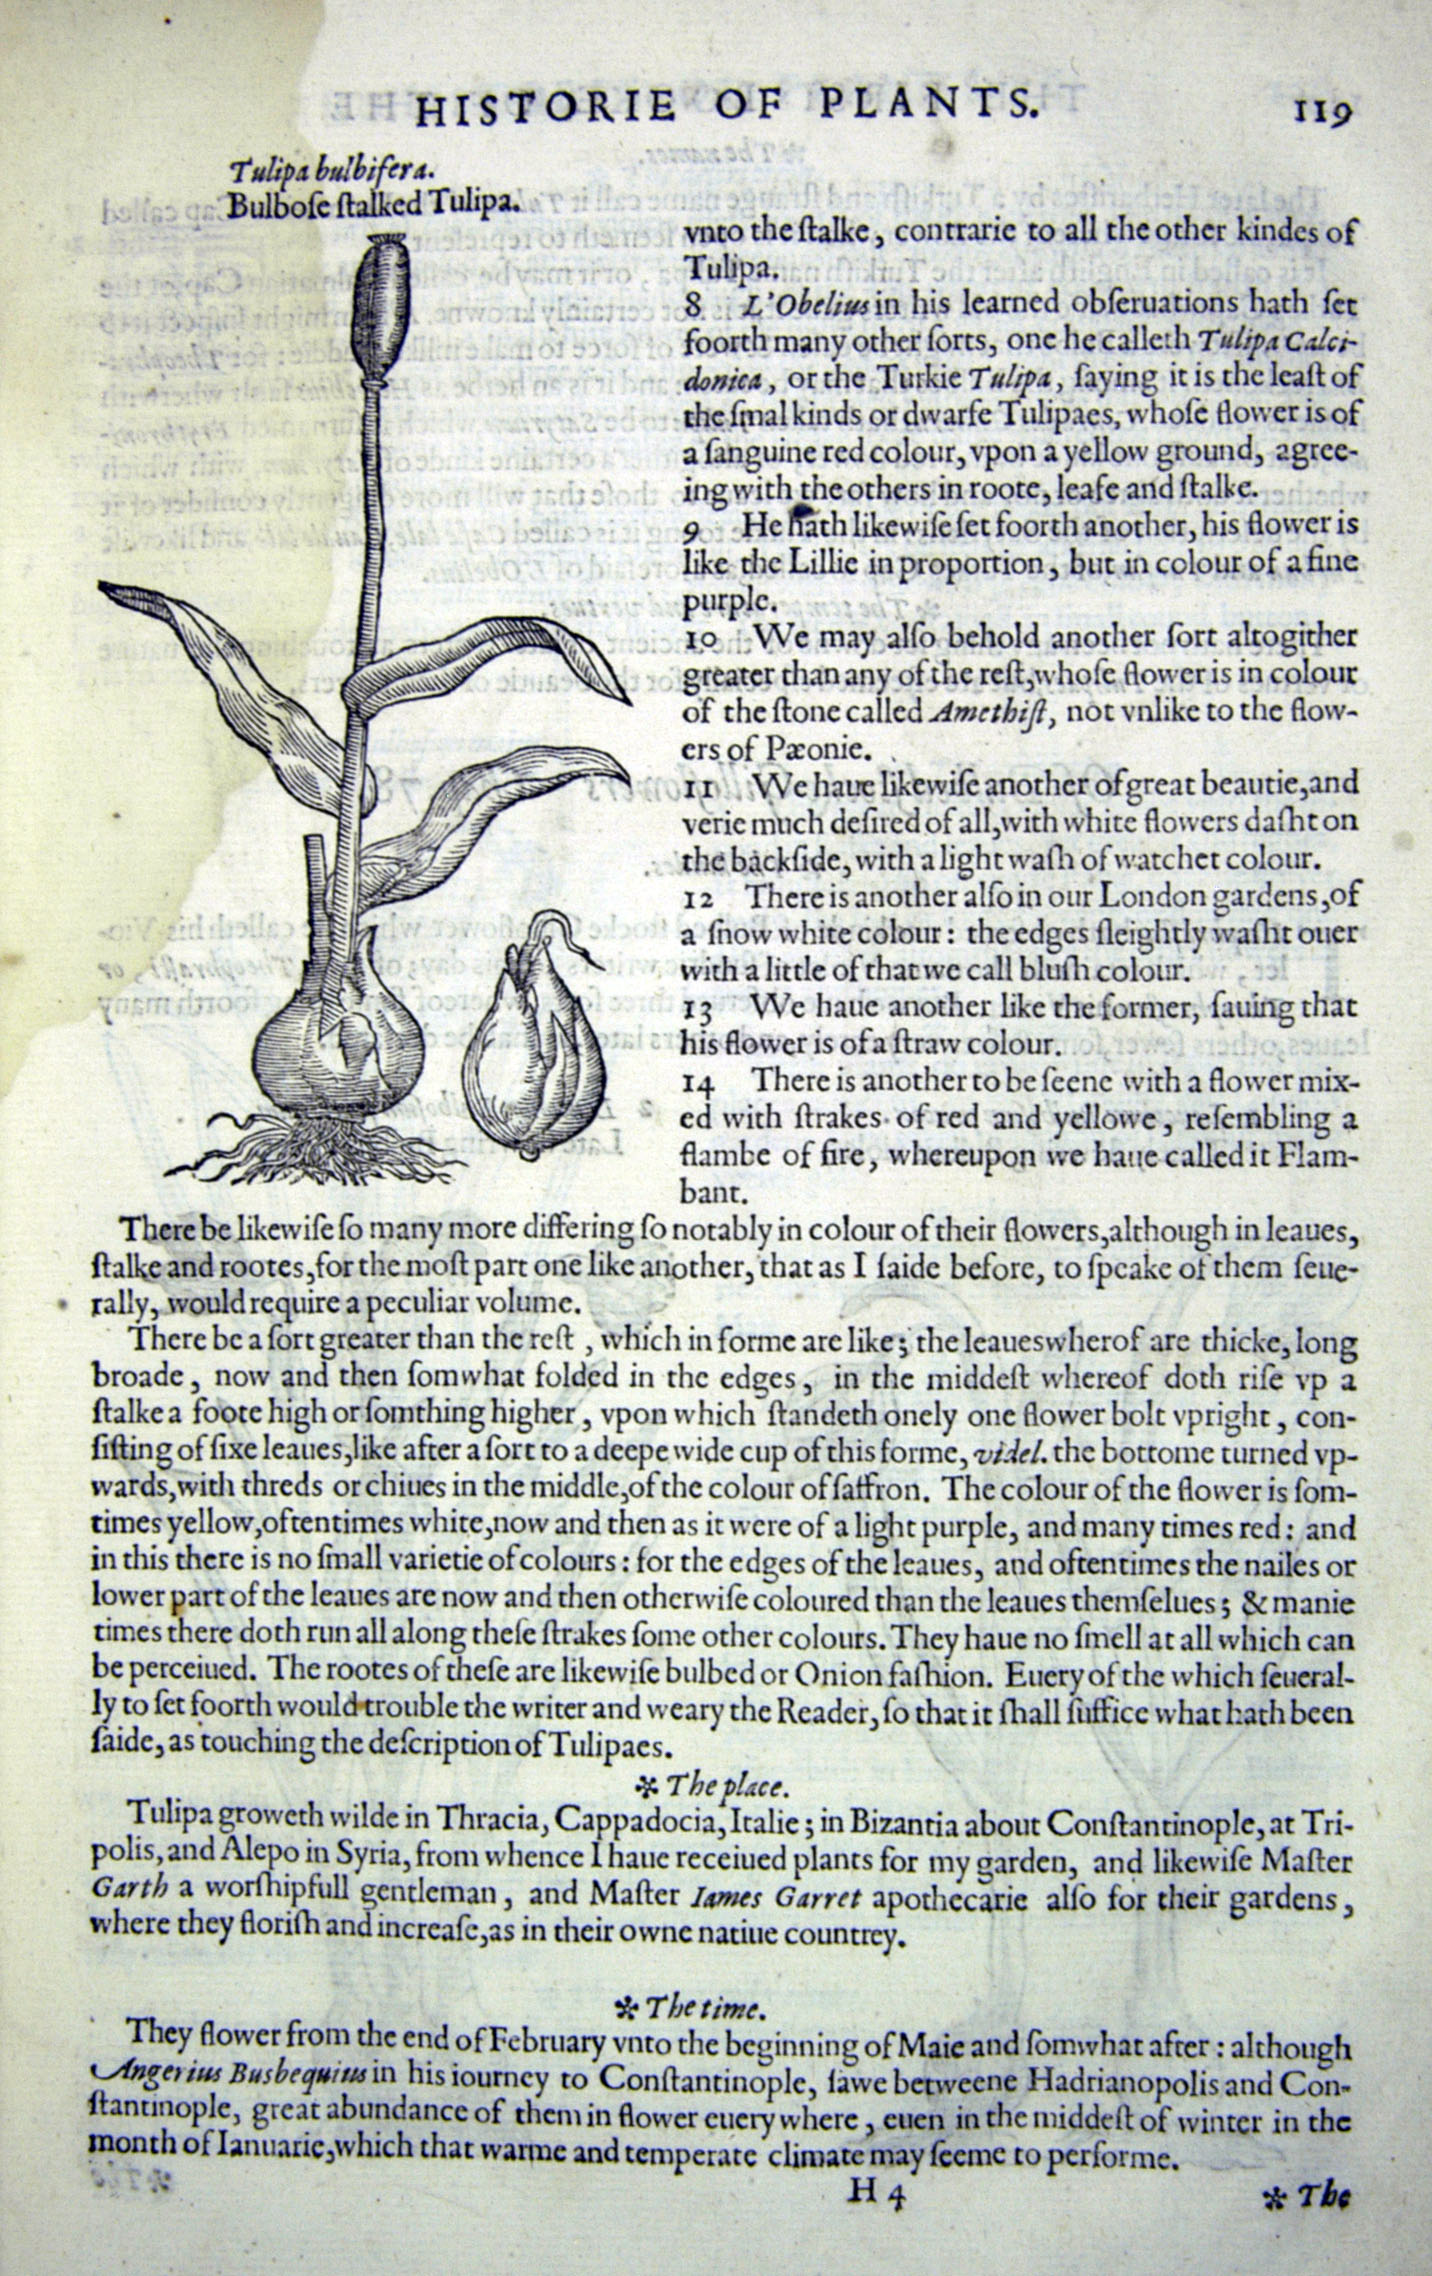 HISTORIE OF PLANTS. 119
Tulipa bulbifera.
Bulboſe ſtalked Tulipa.
vnto the ſtalke, contrarie to all the other kindes of
Tulipa.
8 L'Obelius in his learned obſeruations hath ſet
foorth many other ſorts, one he calleth Tulipa Calci-
donica, or the Turkie Tulipa, ſaying it is the leaſt of
the ſmal kinds or dwarfe Tulipaes, whoſe flower is of
a ſanguine red colour, vpon a yellow ground, agree-
ing with the others in roote, leafe and ſtalke.
9 He hath likewiſe ſet foorth another, his flower is
like the Lillie in proportion, but in colour of a fine
purple.
10 We may alſo behold another ſort altogither
greater than any of the reſt, whoſe flower is in colour
of the ſtone called Amethiſt, not vnlike to the flow-
ers of Pæonie.
11 We haue likewiſe another of great beautie, and
verie much deſired of all, with white flowers daſht on
the backſide, with a light waſh of watchet colour.
12 There is another alſo in our London gardens, of
a ſnow white colour: the edges ſleightly waſht ouer
with a little of that we call bluſh colour.
13 We haue another like the former, ſauing that
his flower is of a ſtraw colour.
14 There is another to be ſeene with a flower mix-
ed with ſtrakes of red and yellowe, reſembling a
flambe of fire, whereupon we haue called it Flam-
bant.
There be likewiſe ſo many more differing ſo notably in colour of their flowers, although in leaues,
ſtalke and rootes, for the moſt part one like another, that as I ſaide before, to ſpeake of them ſeue-
rally, would require a peculiar volume.
There be a ſort greater than the reſt, which in forme are like; the leaues wherof are thicke, long
broade, now and then ſomwhat folded in the edges, in the middeſt whereof doth riſe vp a
ſtalke a foote high or ſomthing higher, vpon which ſtandeth onely one flower bolt vpright, con-
ſiſting of ſixe leaues, like after a ſort to a deepe wide cup of this forme, videl. the bottome turned vp-
wards, with threds or chiues in the middle, of the colour of ſaffron. The colour of the flower is ſom-
times yellow, oftentimes white, now and then as it were of a light purple, and many times red: and
in this there is no ſmall varietie of colours: for the edges of the leaues, and oftentimes the nailes or
lower part of the leaues are now and then otherwiſe coloured than the leaues themſelues; & manie
times there doth run all along theſe ſtrakes ſome other colours. They haue no ſmell at all which can
be perceiued. The rootes of theſe are likewiſe bulbed or Onion faſhion. Euery of the which ſeueral-
ly to ſet foorth would trouble the writer and weary the Reader, ſo that it ſhall ſuffice what hath been
ſaide, as touching the deſcription of Tulipaes.
✻ The place.
Tulipa groweth wilde in Thracia, Cappadocia, Italie; in Bizantia about Conſtantinople, at Tri-
polis, and Alepo in Syria, from whence I haue receiued plants for my garden, and likewiſe Maſter
Garth a worſhipfull gentleman, and Maſter Iames Garret apothecarie alſo for their gardens,
where they floriſh and increaſe, as in their owne natiue countrey.
✻ The time.
They flower from the end of February vnto the beginning of Maie and ſomwhat after: although
Angerius Busbequius in his iourney to Conſtantinople, ſawe betweene Hadrianopolis and Con-
ſtantinople, great abundance of them in flower euery where, euen in the middeſt of winter in the
month of Ianuarie, which that warme and temperate climate may ſeeme to performe.
H 4 ✻ The